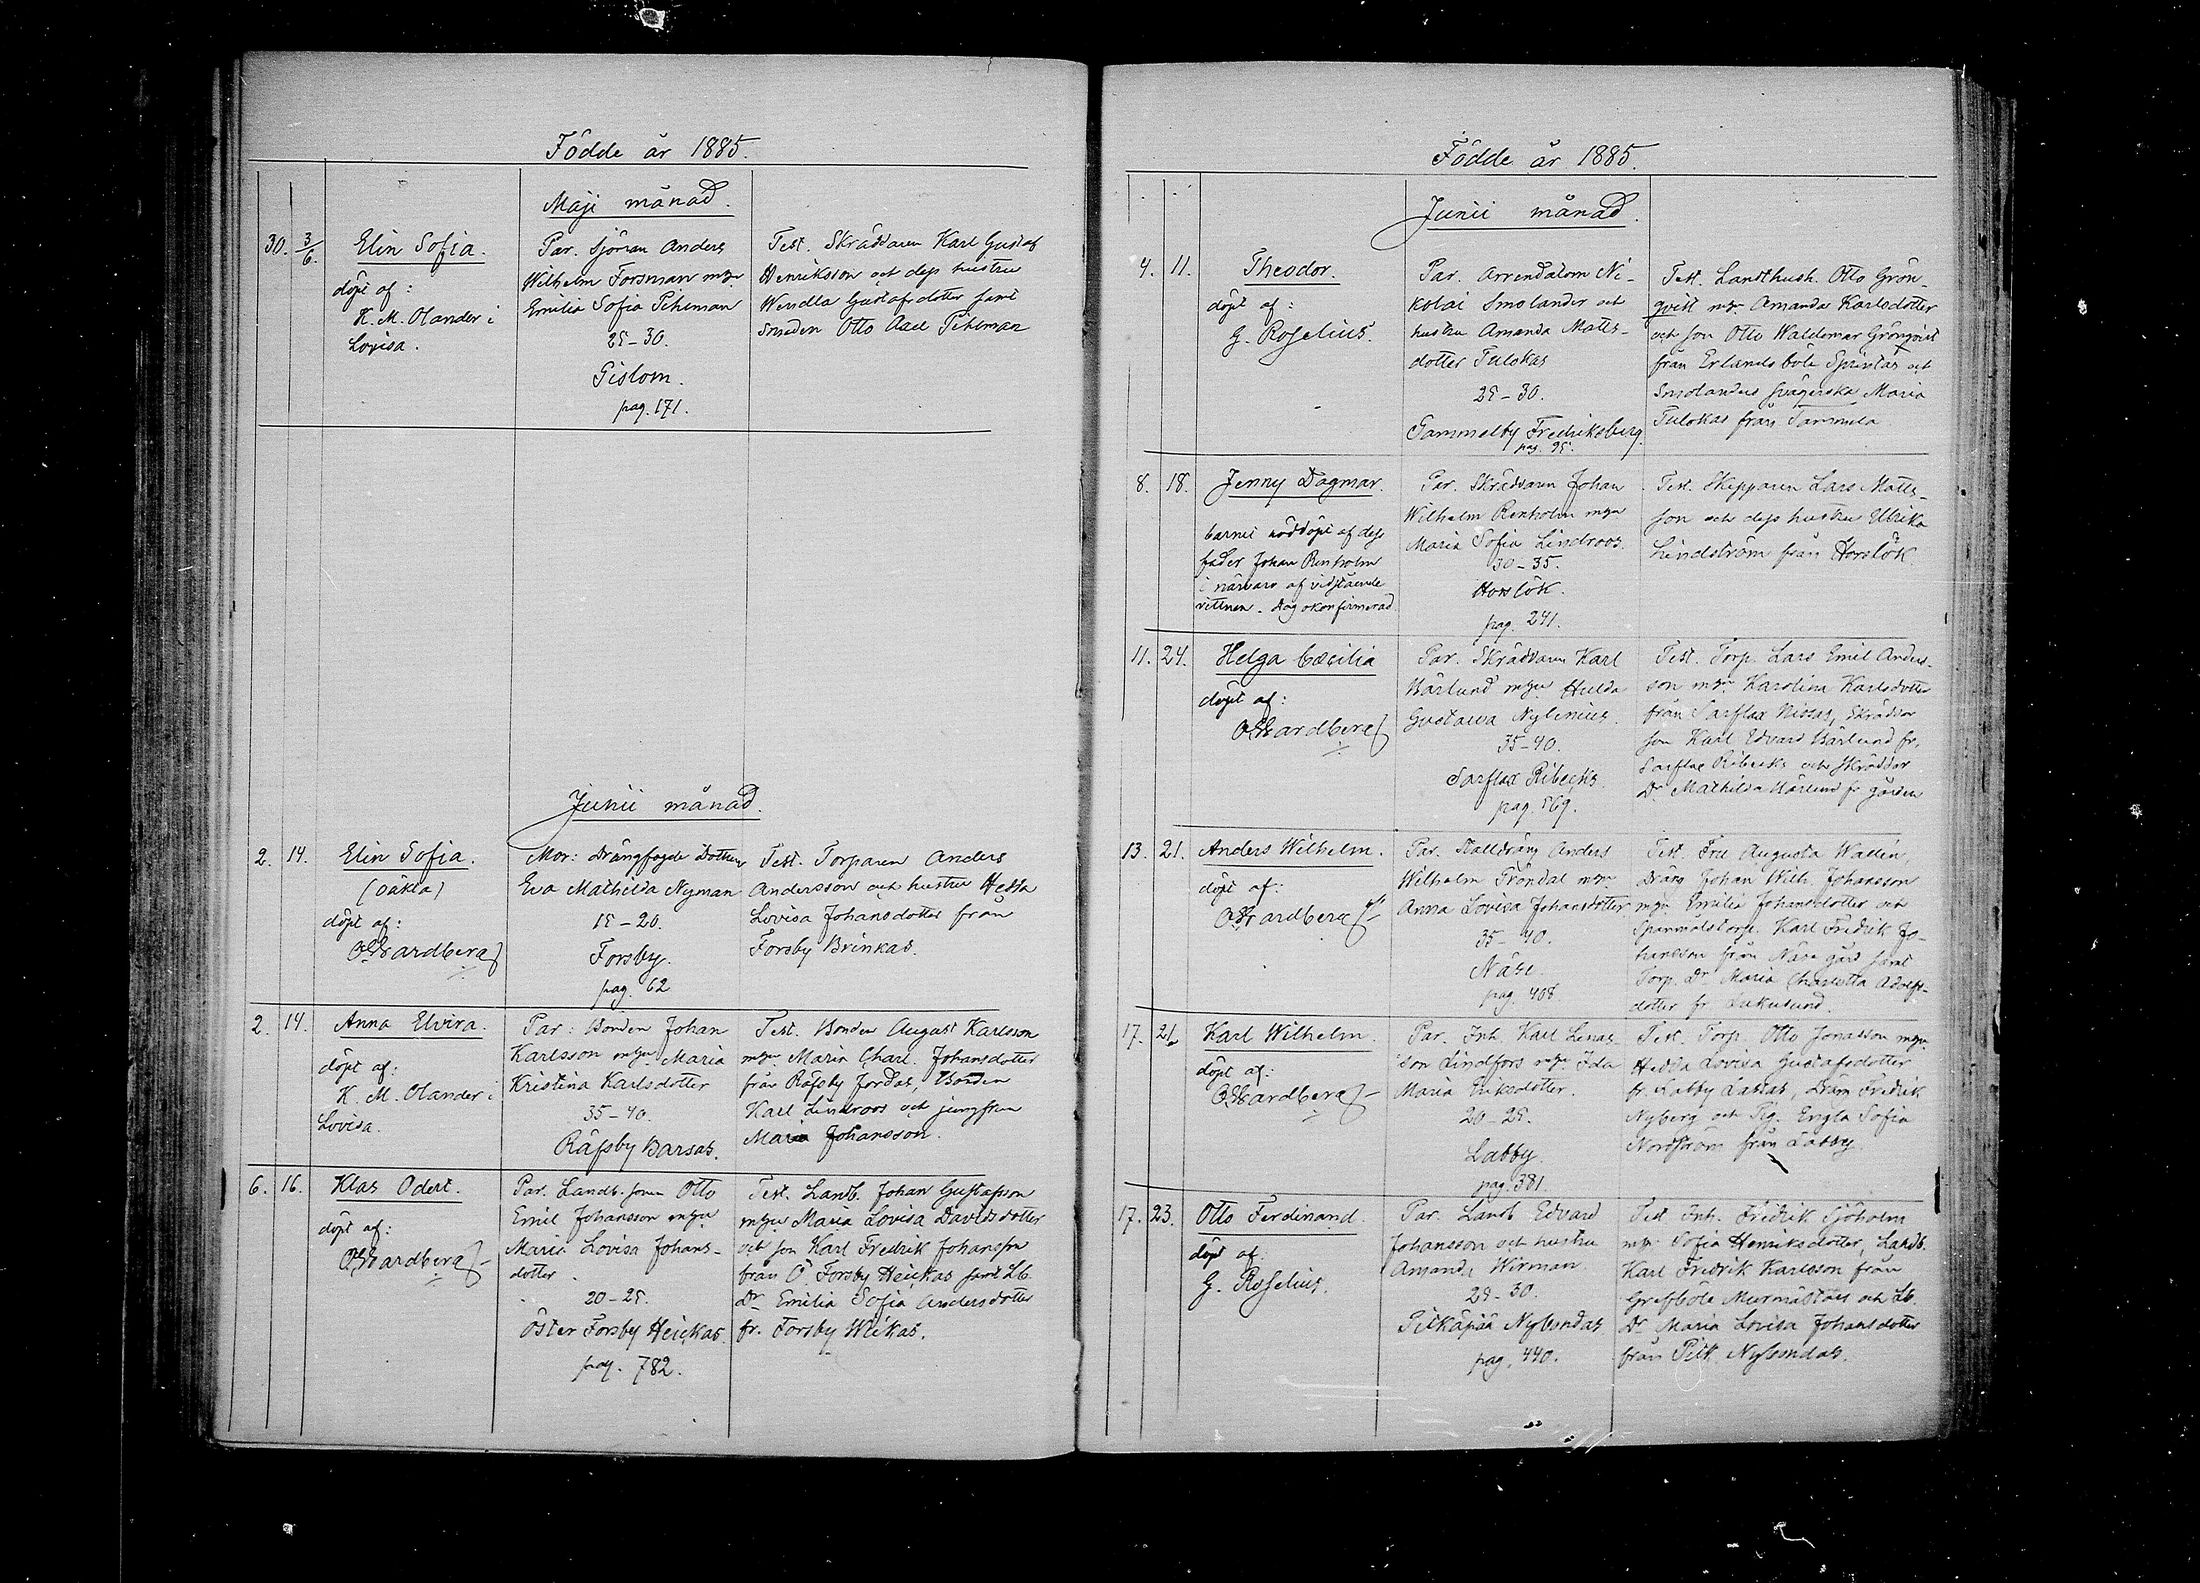 Födde år 1885.
Maji månad.
30. 3/6. Elin Sofia.
döpt af:
K. M. Olander i
Lovisa.
Par. Sjöman Anders
Wilhelm Forsman m hu
Emilia Sofia Pihlman
25-30.
Gislom.
pag. 171.
Test. Skräddaren Karl Gustaf
Henriksson och dess hustru
Wendla Gustafsdotter samt
Smeden Otto Axel Pihlman
Junii månad.
2. 14. Elin Sofia.
(oäkta)
döpt af:
O. Gardberg
Mor: Drängfogde Dottern
Eva Mathilda Nyman
15-20.
Forsby.
pag. 62
Test. Torparen Anders
Andersson och hustru Hedda
Lovisa Johansdotter från
Forsby Brinkas.
2. 14. Anna Elvira.
döpt af:
K. M. Olander i
Lovisa.
Par: Bonden Johan
Karlsson m hu Maria
Kristina Karlsdotter
35-40.
Räfsby Barsas.
Test. Bonden August Karlsson
m hu Maria Charl. Johansdotter
från Räfsby Jordas, Bonden
Karl Lindroos och jungfrun
Maria Johansson.
6. 16. Klas Odert.
döpt af:
O. Gardberg
Par. Landb. sonen Otto
Emil Johansson m hu
Maria Lovisa Johans-
dotter.
20-25.
Öster Forsby Heickas
pag. 782.
Test. Landb. Johan Gustafsson
m hu Maria Lovisa Davidsdotter
och son Karl Fredrik Johansson
från Ö. Forsby Heickas samt Lb.
Dr Emilia Sofia Andersdotter
fr. Forsby Wickas.
Födde år 1885.
Junii månad.
4. 11. Theodor.
döpt af:
G. Roselius.
Par. Arrendatorn Ni-
kolai Smolander och
hustru Amanda Matts-
dotter Tulokas
25-30.
Gammelby Fredriksberg.
pag. 95.
Test. Landthush. Otto Grön-
qvist m hu Amanda Karlsdotter
och son Otto Waldemar Grönqvist
från Erlandsböle Sprintas och
Smolanders svägerska Maria
Tulokas från Tammela
8. 18. Jenny Dagmar.
barnet nöddöpt af dess
fader Johan Renholm
i närvaro af vidstående
vittnen. Dog okonfirmerad
Par. Skräddaren Johan
Wilhelm Renholm m hu
Maria Sofia Lindroos.
30-35.
Horslök.
pag. 241.
Test. Skepparen Lars Matts-
son och dess hustru Ulrika
Lindström från Horslök.
11. 24. Helga Cæcilia
döpt af:
O. Gardberg
Par. Skräddaren Karl
Bärlund m hu Hulda
Gustava Nylenius.
35-40.
Sarflax Ribecks.
pag. 569.
Test. Torp. Lars Emil Anders-
son m hu Karolina Karlsdotter
från Sarflax Nissas, Skräddar
son Karl Edvard Bärlund fr.
Sarflax Ribecks och Skräddar
Dr Mathilda Bärlund fr gården
13. 21. Anders Wilhelm.
döpt af:
O. Gardberg
Par. Stalldräng Anders
Wilhelm Tröndal m hu
Anna Lovisa Johansdotter
35-40.
Näse.
pag. 408
Test. Fru Augusta Wallén,
Dräng Johan Wilh. Johansson
m hu Emilia Johansdotter och
Spanmålstorp. Karl Fredrik Jo-
hansson från Näse gård samt
Torp. Dr Maria Charlotta Adolfs-
dotter fr
17. 21. Karl Wilhelm.
döpt af:
O. Gardberg
Par. Inh. Karl Lenas
son Lindfors m hu Ida
Maria Eriksdotter.
20-25.
Labby.
pag. 381
Test. Torp. Otto Jonasson m hu
Hedda Lovisa Gustafsdotter
fr. Labby Lassas, Dräng Fredrik
Nyberg och Pig. Engla Sofia
Nordström från Labby.
17. 23. Otto Ferdinand.
döpt af:
G. Roselius.
Par. Landb Edvard
Johansson och hustru
Amanda Wirman
25-30.
Pitkäpää Nybondas
pag. 440.
Test Inh. Fredrik Sjöholm
m hu Sofia Henriksdotter, Landb.
Karl Fredrik Karlsson från
Gräfböle Murmästars och Lb.
Dr Maria Lovisa Johansdotter
från Pitk. Nybondas.